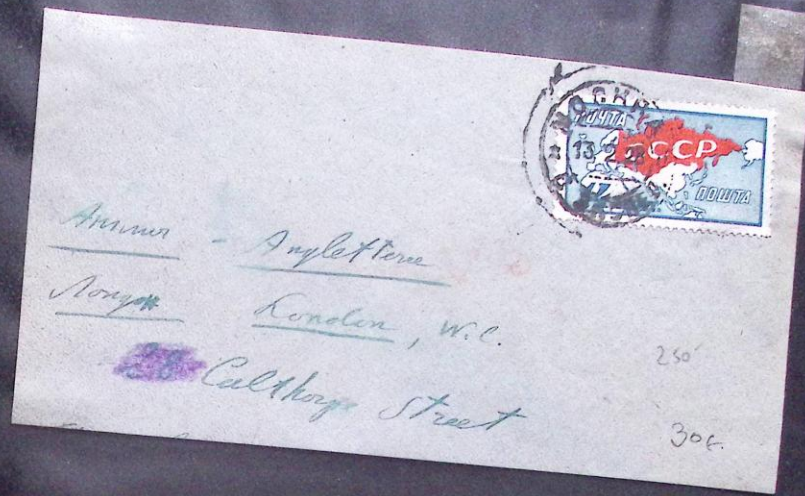 МОСКВА
ПОЧТА
13 2 28
СССР
ПОШТА
Англия - Angleterre
Лондон London, W.C.
28 Calthorpe Street
250
30 €.